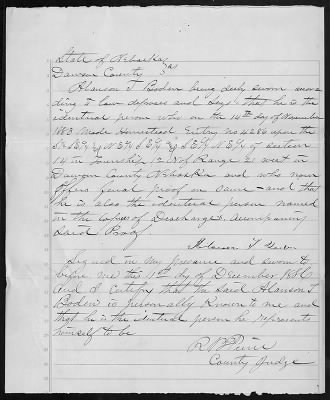 State of Nebraska
Dawson County } ss
Alanson T Boden being duly sworn accor
ding to law deposes and says that he is the
identical person who on the 14th day of November
1883 Made Homestead Entry No 4286 upon the
S½ SE¼ N.E¼ S.E¼ S.E¼ N.E¼ of section
14 in Township 12 N of Range 21 west in
Dawson County Nebraska and who now
offers final proof on same - and that
he is also the identical person named
in the copies of Discharges Accompanying
Said Proof
Alanson T
Signed in my presence and sworn to
before me the day of December 1886
And I certify that the Said Alanson T
Boden is personally known to me and
that he is the identical person he represents
himself to be
R B Pierce
County Judge